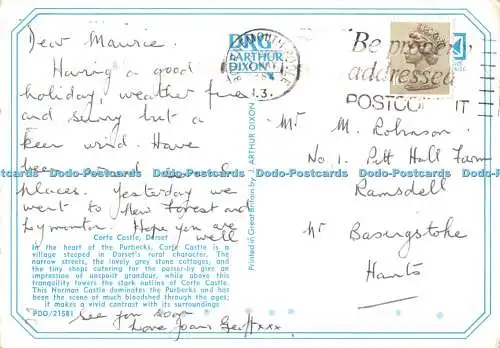 Dear Maurice.
Having a good
holiday, weather fine
and sunny but a
keen wind. Have
been
places. Yesterday we
went to New Forest and
Lymington. Hope you are
well
Corfe Castle, Dorset
In the heart of the Purbecks, Corfe Castle is a
village steeped in Dorset's rural character. The
narrow streets, the lovely grey stone cottages, and
the tiny shops catering for the passer-by give an
impression of unspoilt grandeur, while above this
tranquillity towers the stark outline of Corfe Castle.
This Norman Castle dominates the Purbecks and has
been the scene of much bloodshed through the ages;
it makes a vivid contrast with its surroundings
PDO/21581
see you soon
love Joan Geoff xxx
DRG
ARTHUR
DIXON
Printed in Great Britain by J ARTHUR DIXON
Be properly
addressed
POSTCODE IT
Mr M. Robinson.
No. 1. Pitt Hall Farm
Ramsdell
Nr Basingstoke
Hants
Dodo-Postcards Dodo-Postcards Dodo-Postcards Dodo-Postcards Dodo-Postcards